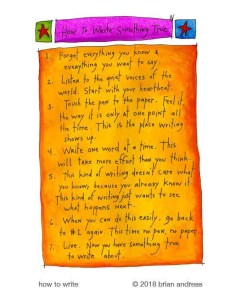 How To Write Something True
1. Forget everything you know &
everything you want to say
2. Listen to the quiet voices of the
world. Start with your heartbeat.
3. Touch the pen to the paper. Feel
the way it is only at one point all
the time. This is the place writing
shows up.
4. Write one word at a time. This
will take more effort than you think
5. This kind of writing doesn't care what
you know, because you already know it.
This kind of writing just wants to see
what happens next.
6. When you can do this easily, go back
to #1 again. This time no pen, no paper.
7. Live. Now you have something true
to write about.
how to write
© 2018 brian andreas